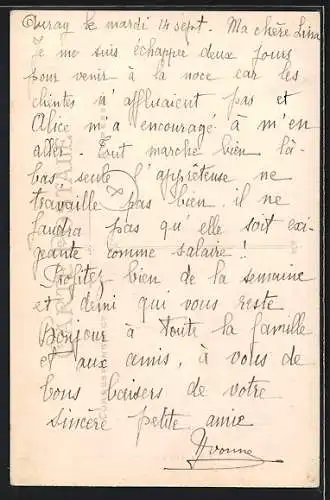 Auray le mardi 14 sept. Ma chère Lina
Je me suis échappée deux jours
pour venir à la noce car les
clientes n'affluaient pas et
Alice m'a encouragé à m'en
aller. Tout marche bien là-
bas seule l'apprêteuse ne
travaille pas bien il ne
faudra pas qu'elle soit exi-
geante comme salaire !
Profitez bien de la semaine
et demi qui vous reste
Bonjour à toute la famille
et aux amis, à vous de
bons baisers de votre
sincère petite amie
Yvonne
CARTE POSTALE